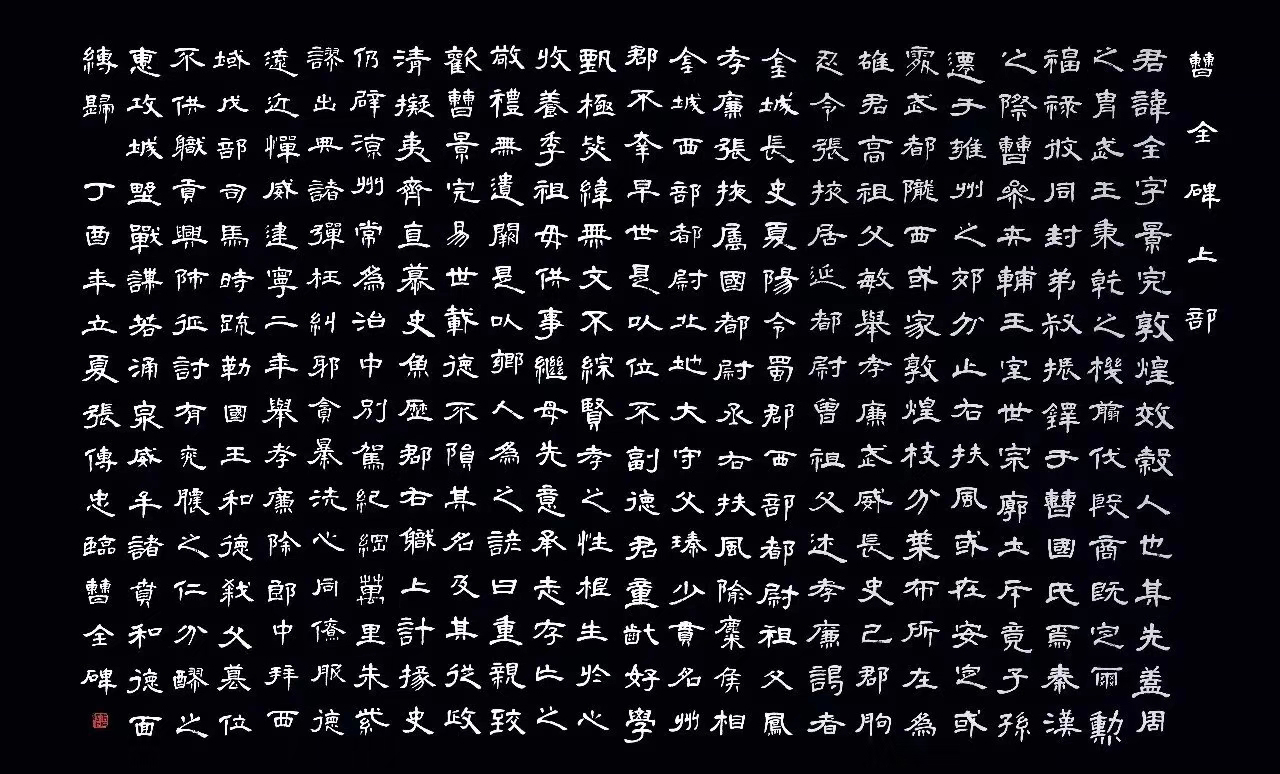 曹全碑上部
君諱全字景完敦煌效穀人也其先蓋周
之冑武王秉乾之機翦伐殷商既定爾勳
福祿攸同封弟叔振鐸于曹國氏焉秦漢
之際曹參夾輔王室世宗廓土斥竟子孫
遷于雍州之郊分止右扶風或在安定或
處武都隴西或家敦煌枝分葉布所在為
雄君高祖父敏舉孝廉武威長史巴郡朐
忍令張掖居延都尉曾祖父述孝廉謁者
金城長史夏陽令蜀郡西部都尉祖父鳳
孝廉張掖屬國都尉丞右扶風隃麋侯相
金城西部都尉北地大守父琫少貫名州
郡不幸早世是以位不副德君童齔好學
甄極毖緯無文不綜賢孝之性根生於心
收養季祖母供事繼母先意承志存亡之
敬禮無遺闕是以鄉人為之諺曰重親致
歡曹景完易世載德不隕其名及其從政
清擬夷齊直慕史魚歷郡右職上計掾史
仍辟涼州常為治中別駕紀綱萬里朱紫
謬出典諸彈枉糾邪貪暴洗心同僚服德
遠近憚威建寧二年舉孝廉除郎中拜西
域戊部司馬時疏勒國王和德弒父篡位
不供職貢興師征討有兗膿之仁分醪之
惠攻城野戰謀若涌泉威牟諸賁和德面
縛歸 丁酉年立夏張傳忠臨曹全碑